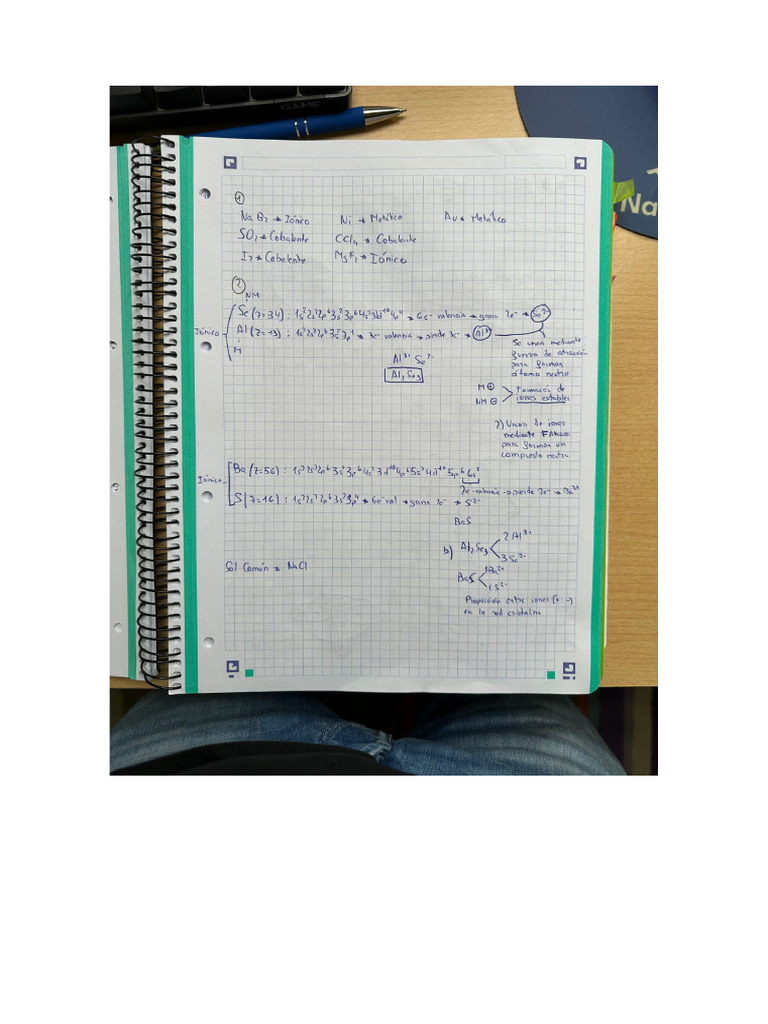 GAME
Na
1
NaBr → Iónico Ni → Metálico Au → Metálico
SO2 → Cobalente CCl4 → Cobalente
I2 → Cobalente MgF2 → Iónico
2
NM
Iónico
Se (z=34) : 1s² 2s² 2p⁶ 3s² 3p⁶ 4s² 3d¹⁰ 4p⁴ → 6e⁻ valencia → gana 2e⁻ → Se²⁻
Al (z=13) : 1s² 2s² 2p⁶ 3s² 3p¹ → 3e⁻ valencia → pierde 3e⁻ → Al³⁺
M
Se unen mediante
fuerza de atracción
para formar
átomo neutro
Al³⁺ Se²⁻
Al2Se3
M ⊕
NM ⊖
Formación de
iones estables
2) Union de iones
mediante
para formar un
compuesto neutro
Iónico
Ba (z=56) : 1s² 2s² 2p⁶ 3s² 3p⁶ 4s² 3d¹⁰ 4p⁶ 5s² 4d¹⁰ 5p⁶ 6s²
2e⁻ valencia → pierde 2e⁻ → Ba²⁺
S (z=16) : 1s² 2s² 2p⁶ 3s² 3p⁴ → 6e⁻ val → gana 2e⁻ → S²⁻
BaS
b) Al2Se3 < 2Al³⁺
3Se²⁻
BaS < 1Ba²⁺
1S²⁻
Proporción entre iones (+ -)
en la red cristalina
Sal Común → NaCl